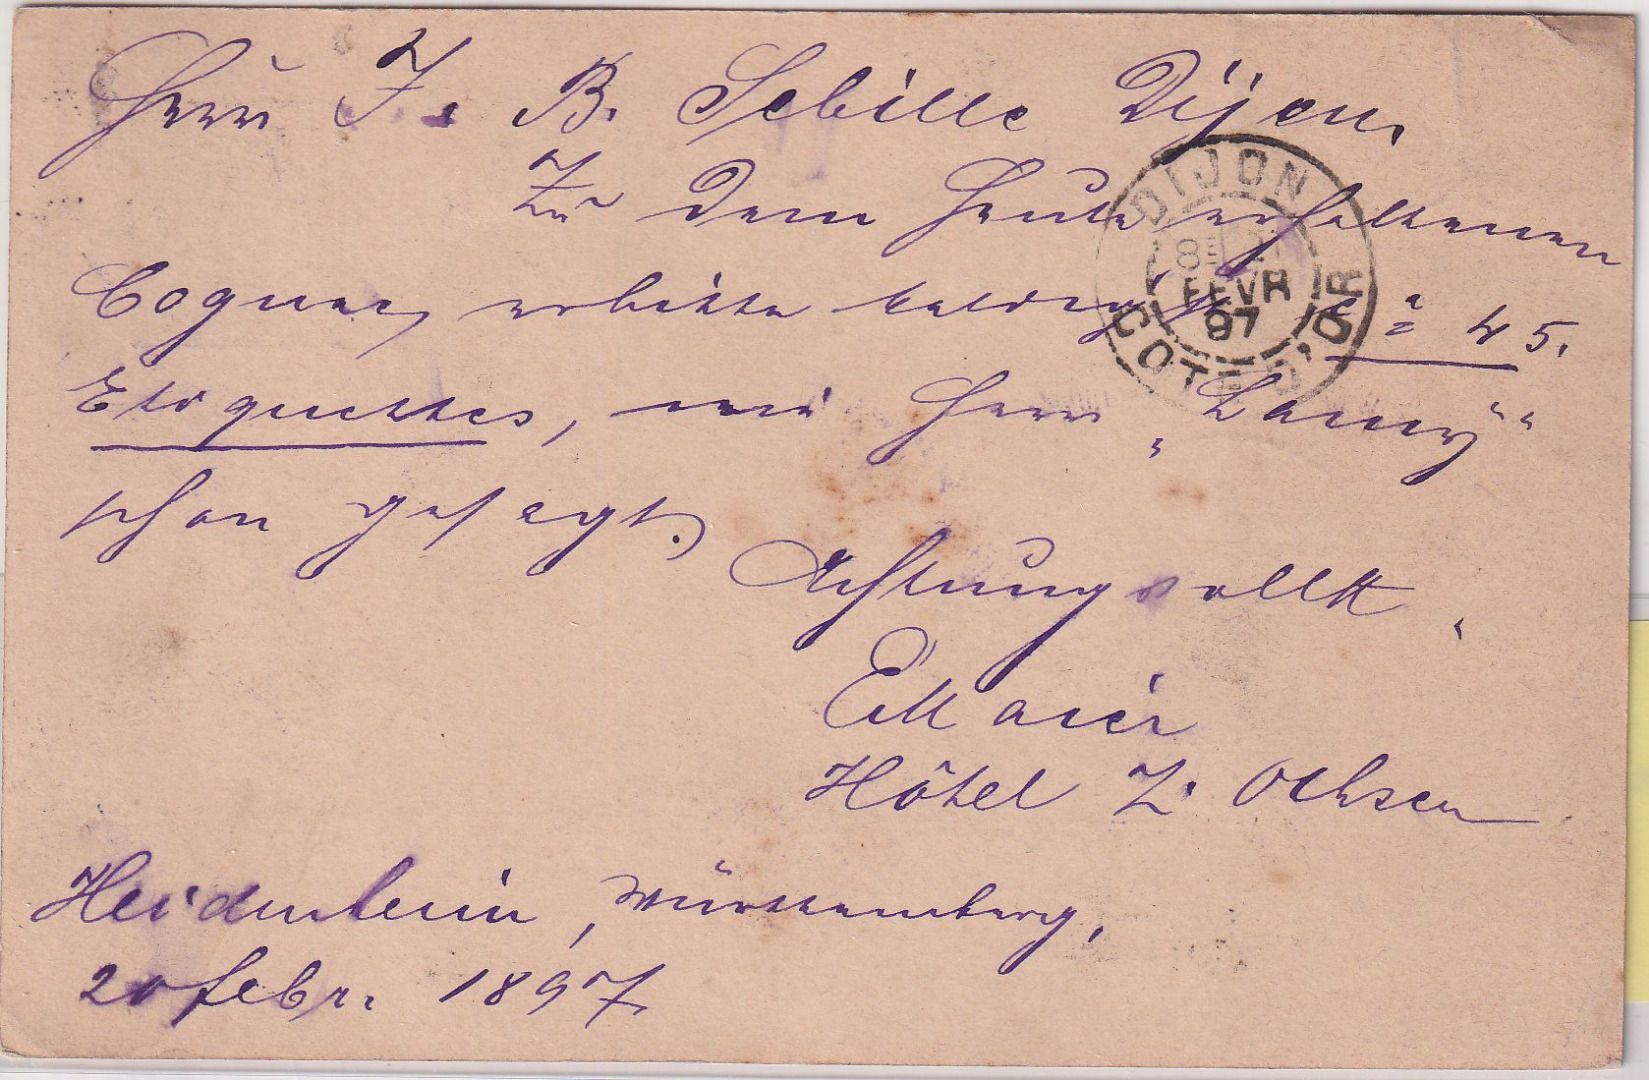 Herr J. B. Sebille Dijon.
Zu dem heute erhaltenen
Cognac, erbitte baldigst à 45.
Etiquettes, wie Herr „Lamy“
schon gesagt.
Achtungsvollst
E Maier
Hôtel z. Ochsen
Heidenheim, Württemberg,
20 Febr. 1897.
DIJON
FEVR
97
COTE D'OR